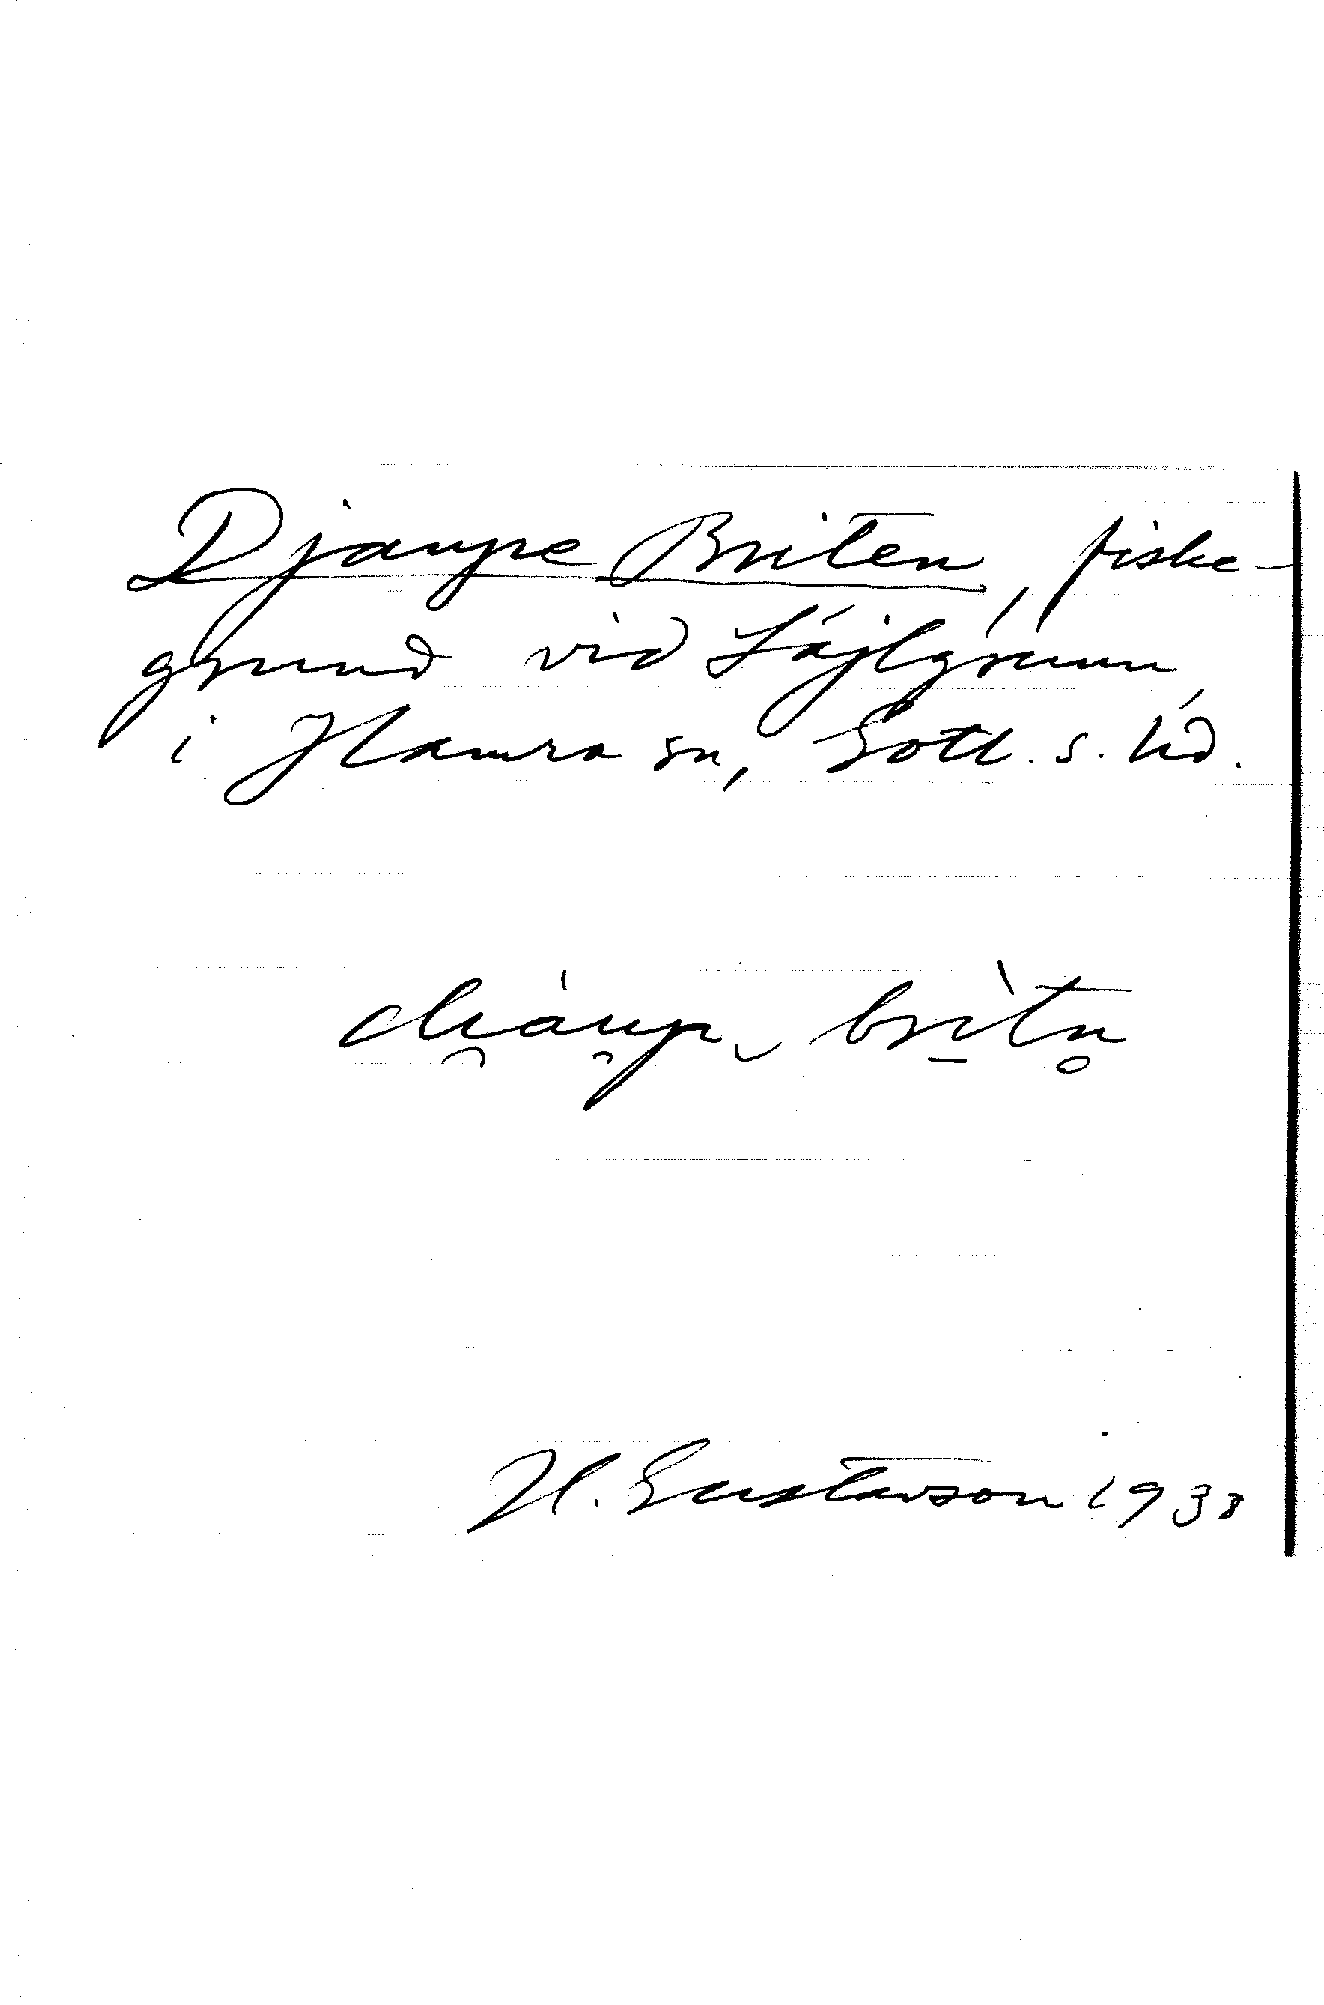 Djaupe Briten, fiske-
grund vid Säjlgrunn
i Hamra sn, Gotl. s. hd.
H. Gustavson 1938